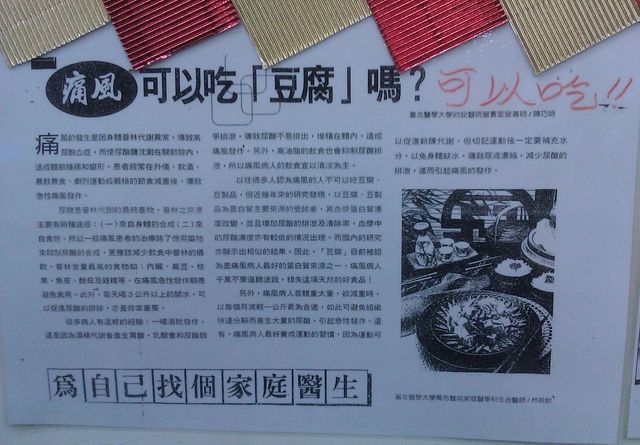 痛風可以吃「豆腐」嗎？
可以吃!!
臺北醫學大學附設醫院營養室營養師/陳巧明
痛風的發生是因身體普林代謝異常，導致高
尿酸血症，而使尿酸鹽沈澱在關節腔內，
造成關節腫脹和變形。患者經常在外傷、飲酒、
暴飲暴食、劇烈運動或嚴格的節食減重後，導致
急性痛風發作。
尿酸是普林代謝的最終產物，普林之來源
主要有兩種途徑：(一)來自身體的合成(二)來
自食物。所以一般痛風患者的治療除了使用藥物
來抑制尿酸的合成，更應該減少飲食中普林的攝
取。普林含量最高的食物如：內臟、扁豆、核
果、魚皮、酵母及雞精等，在痛風急性發作期應
避免食用。此外，每天喝3公升以上的開水，可
以促進尿酸的排除，亦是非常重要。
很多病人有這樣的經驗：一喝酒就發作。
這是因為酒精代謝會產生乳酸，乳酸會和尿酸競
爭排泄，導致尿酸不易排出，堆積在體內，造成
痛風發作。另外，高油脂的飲食也會抑制尿酸排
泄，所以痛風病人的飲食宜以清淡為主。
以往很多人認為痛風的人不可以吃豆腐、
豆製品，但近幾年來的研究發現，以豆腐、豆製
品為蛋白質主要來源的受試者，其血漿蛋白質濃
度改變，並且增加尿酸的排泄及清除率，血漿中
的尿酸濃度亦有較低的情況出現。而國內的研究
亦顯示出相似的結果。因此，「豆腐」目前被認
為是痛風病人最好的蛋白質來源之一，痛風病人
千萬不要道聽塗說，錯失這項天然的好食品！
另外，痛風病人若體重太重，欲減重時，
以每個月減輕一公斤最為合適，如此可避免組織
快速分解而產生大量的尿酸，引起急性發作。還
有，痛風病人最好養成運動的習慣，因為運動可
以促進新陳代謝，但切記運動後一定要補充水
分，以免身體缺水，導致尿液濃縮，減少尿酸的
排泄，進而引起痛風的發作。
為自己找個家庭醫生
臺北醫學大學萬芳醫院家庭醫學科主治醫師/林英欽